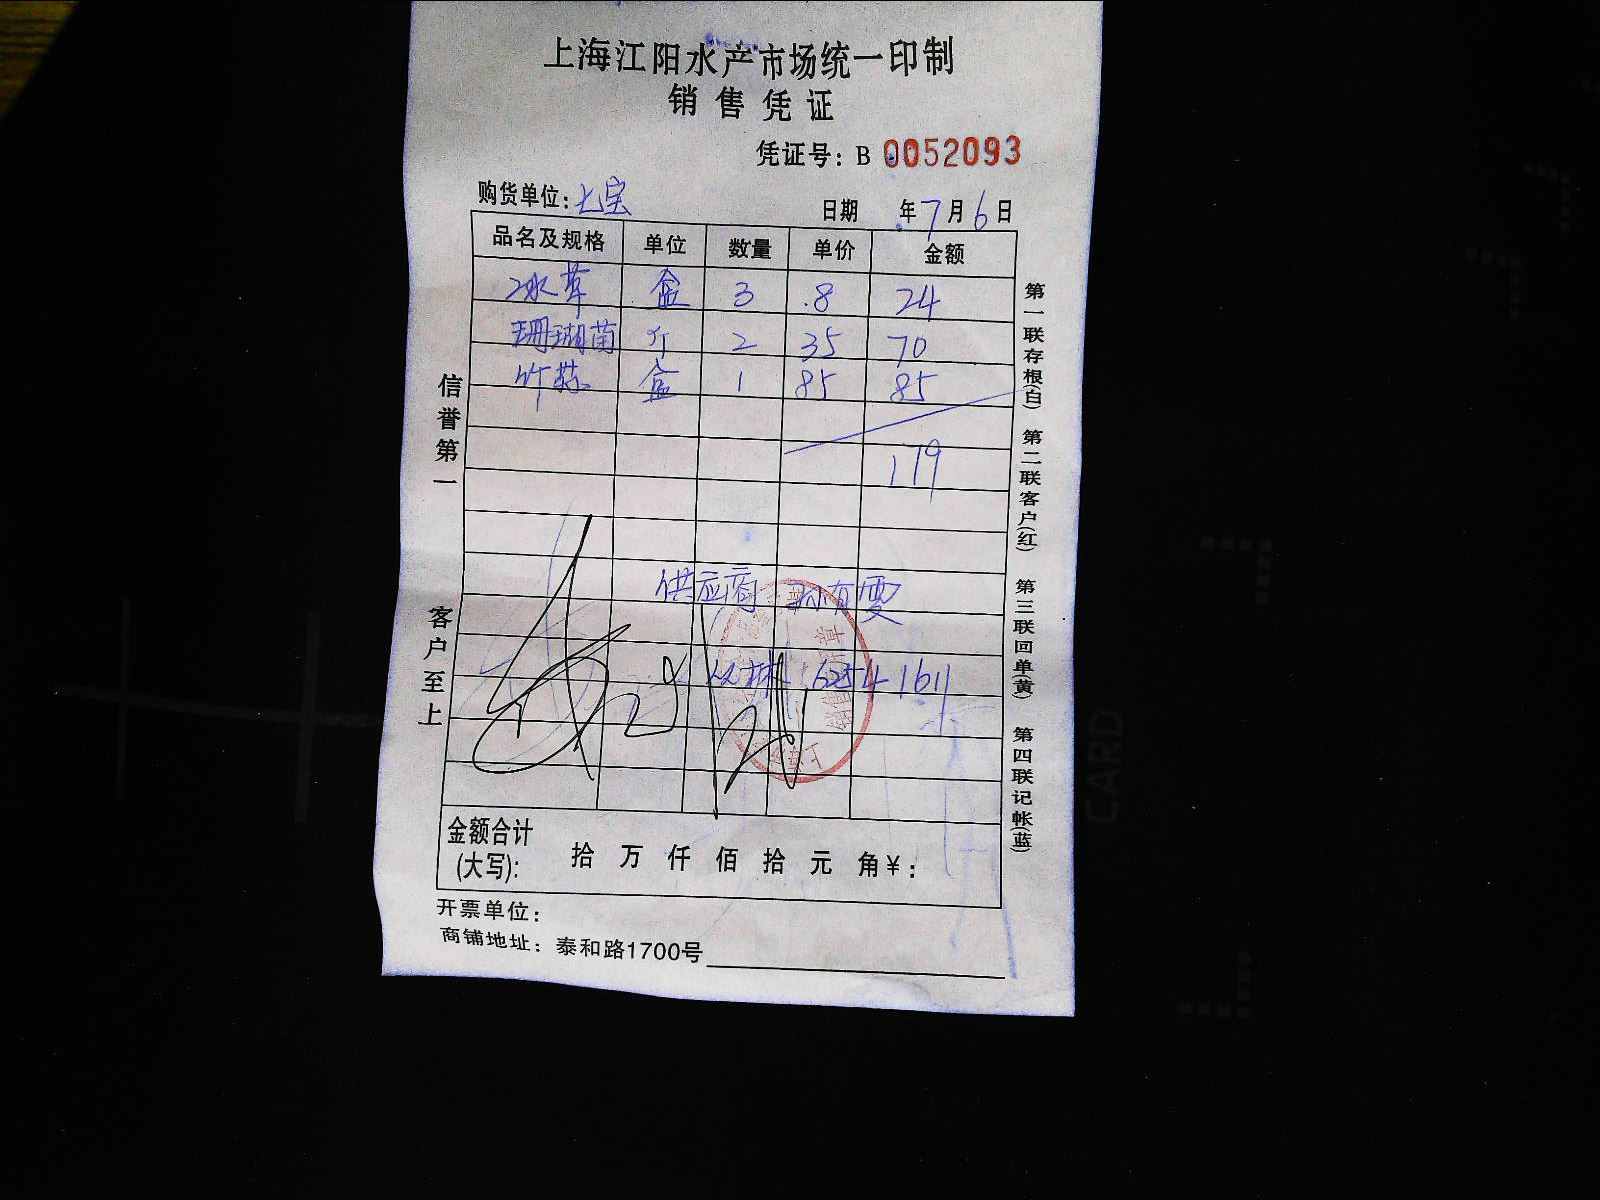 上海江阳水产市场统一印制
销售凭证
凭证号: B 0052093
购货单位: 七宝
日期 年 7 月 6 日
品名及规格 单位 数量 单价 金额
冰草 盒 3 8 24
珊瑚苗 斤 2 35 70
竹荪 盒 1 85 85
179
供应商 孙有雯
6254 1611
金额合计
(大写): 拾 万 仟 佰 拾 元 角 ¥:
开票单位:
商铺地址: 泰和路1700号
信誉第一
客户至上
第一联存根(白) 第二联客户(红) 第三联回单(黄) 第四联记帐(蓝)
CARD